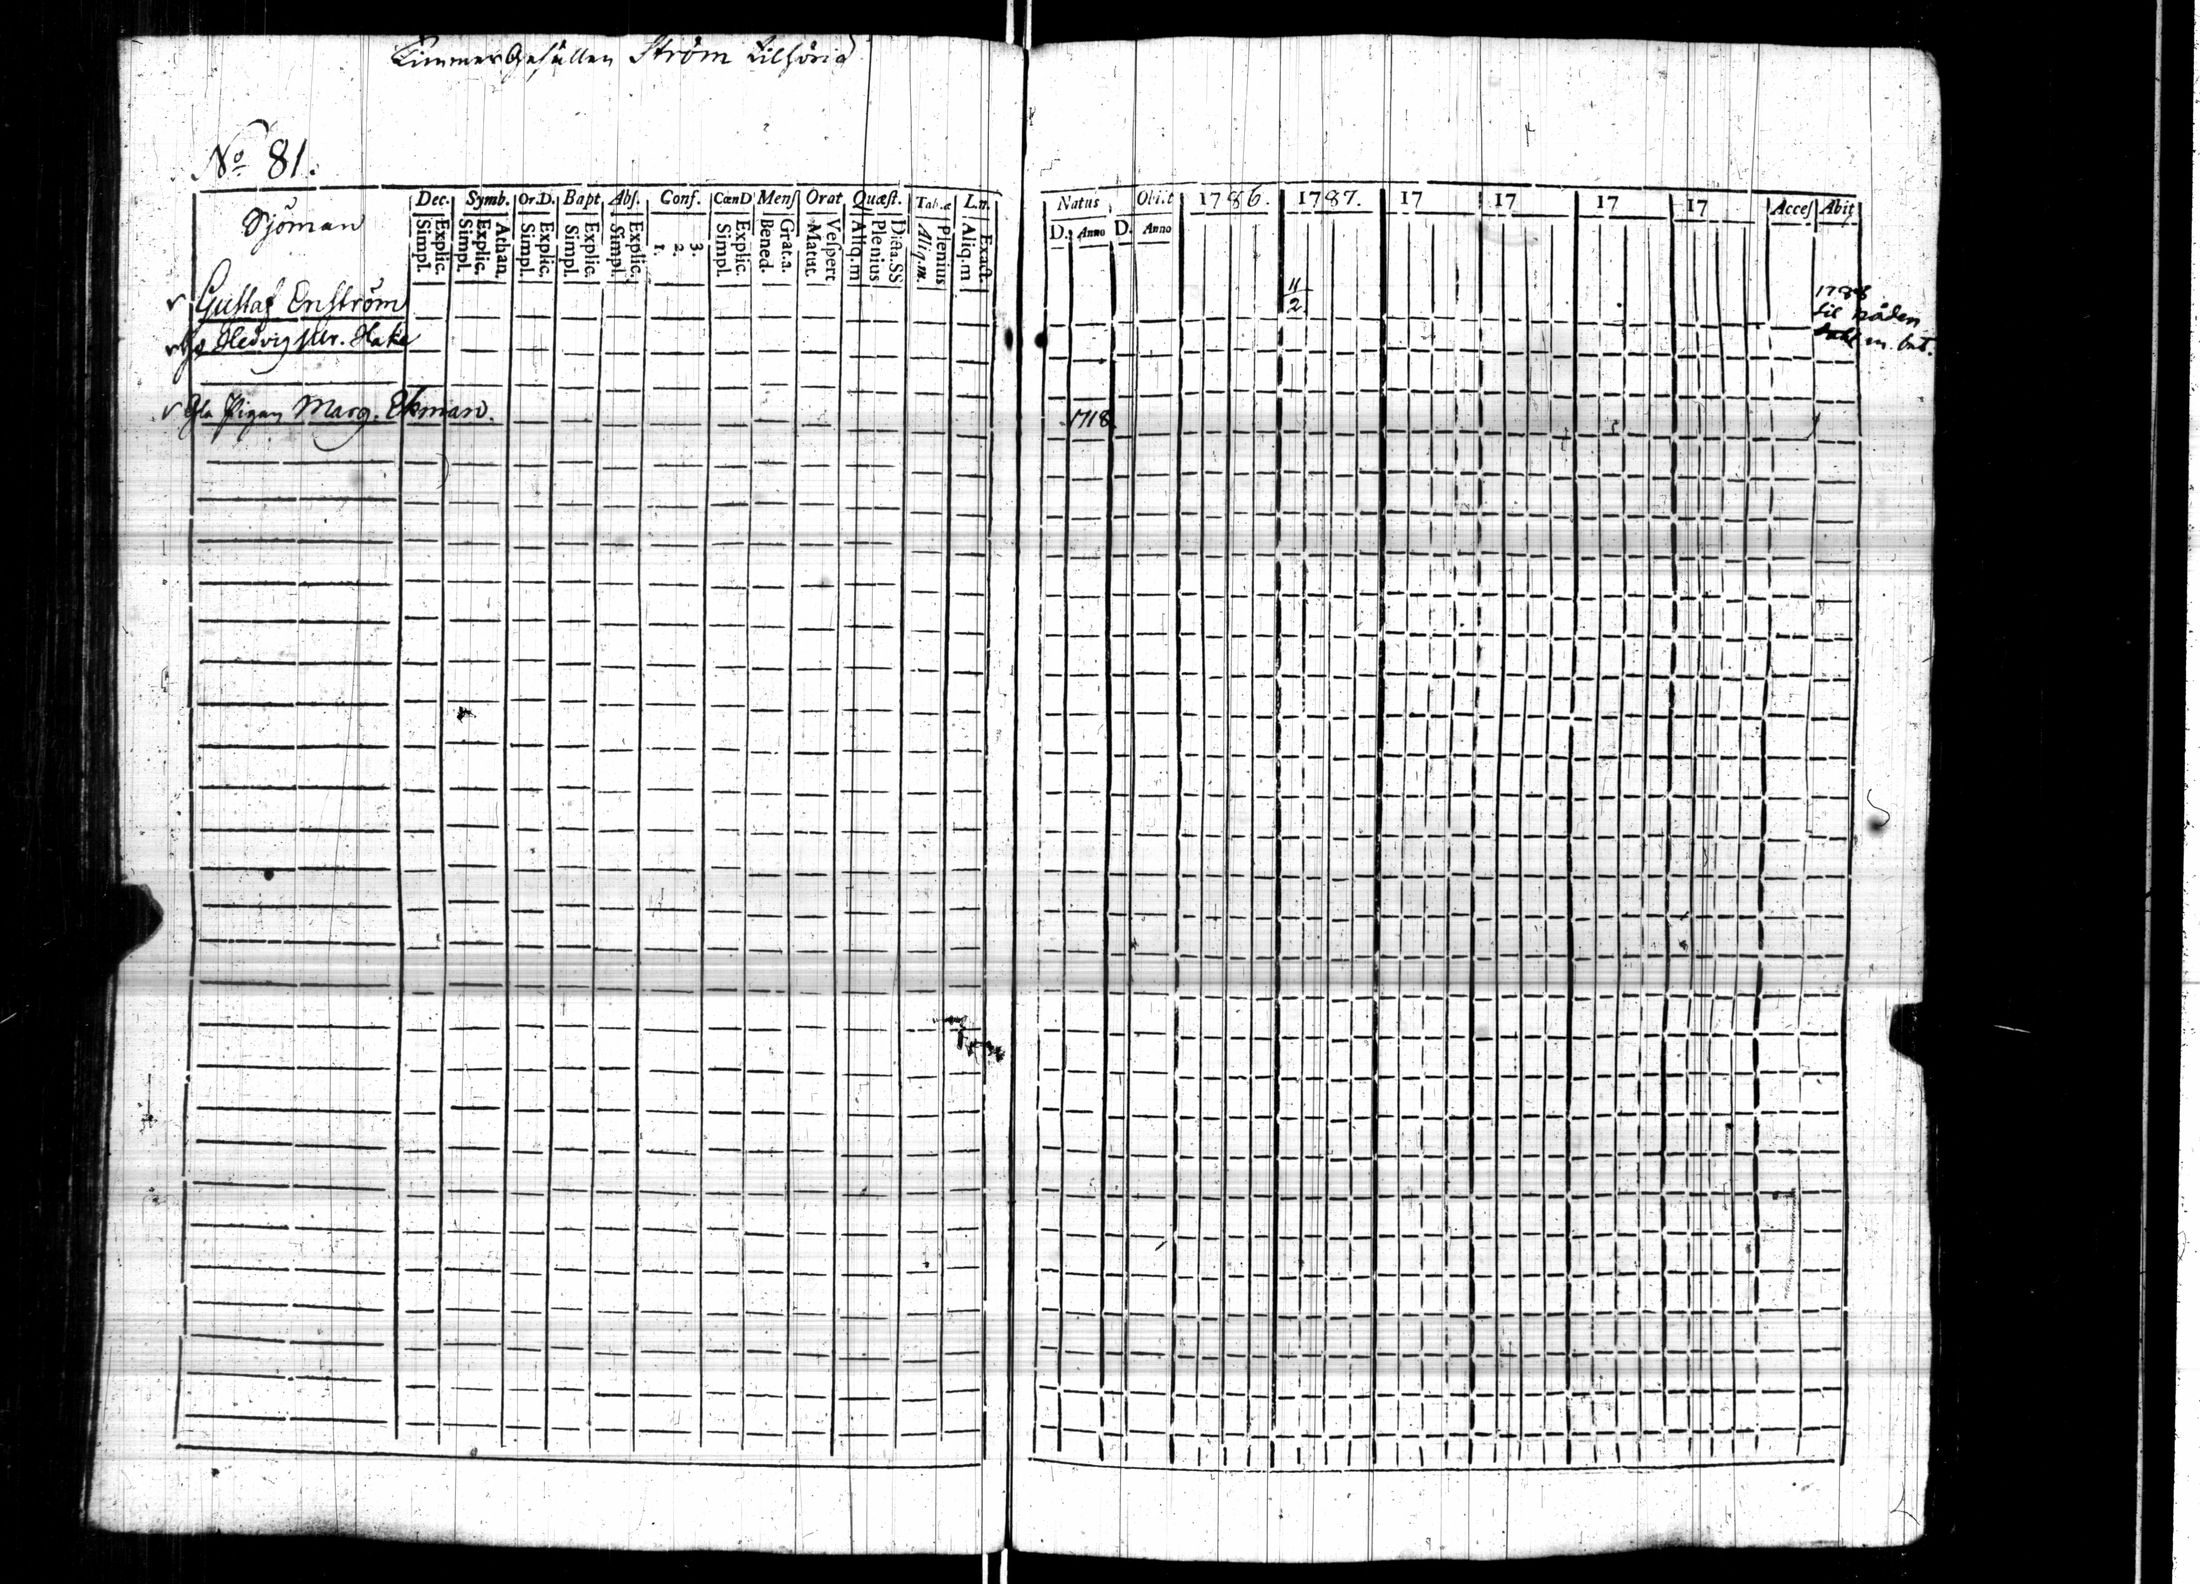 Timmer Gesällen Ström tilhörig
No 81.
Dec. Symb. Or.D. Bapt Abs. Conf. CœnD Mens Orat Quæst. Tab.æ L.n.
Sjöman
Explic. Simpl. Athan. Explic. Simpl. Explic. Simpl. Explic. Simpl. Explic. Simpl. 3. 2. 1. Explic. Simpl. Grat.a. Bened. Vespert Matut. Dicta.SS Plenius Aliq.m Plenius Aliq.m. Exact. Aliq.m
Gustaf Enström
Hu Hedvig Ulr. Hake
Gla Pigan Marg. Ekman.
Natus Obiit 1786. 1787. 17 17 17 17 Acces Abiit
D. Anno D. Anno
11/2
1788
til
m. bet.
1718